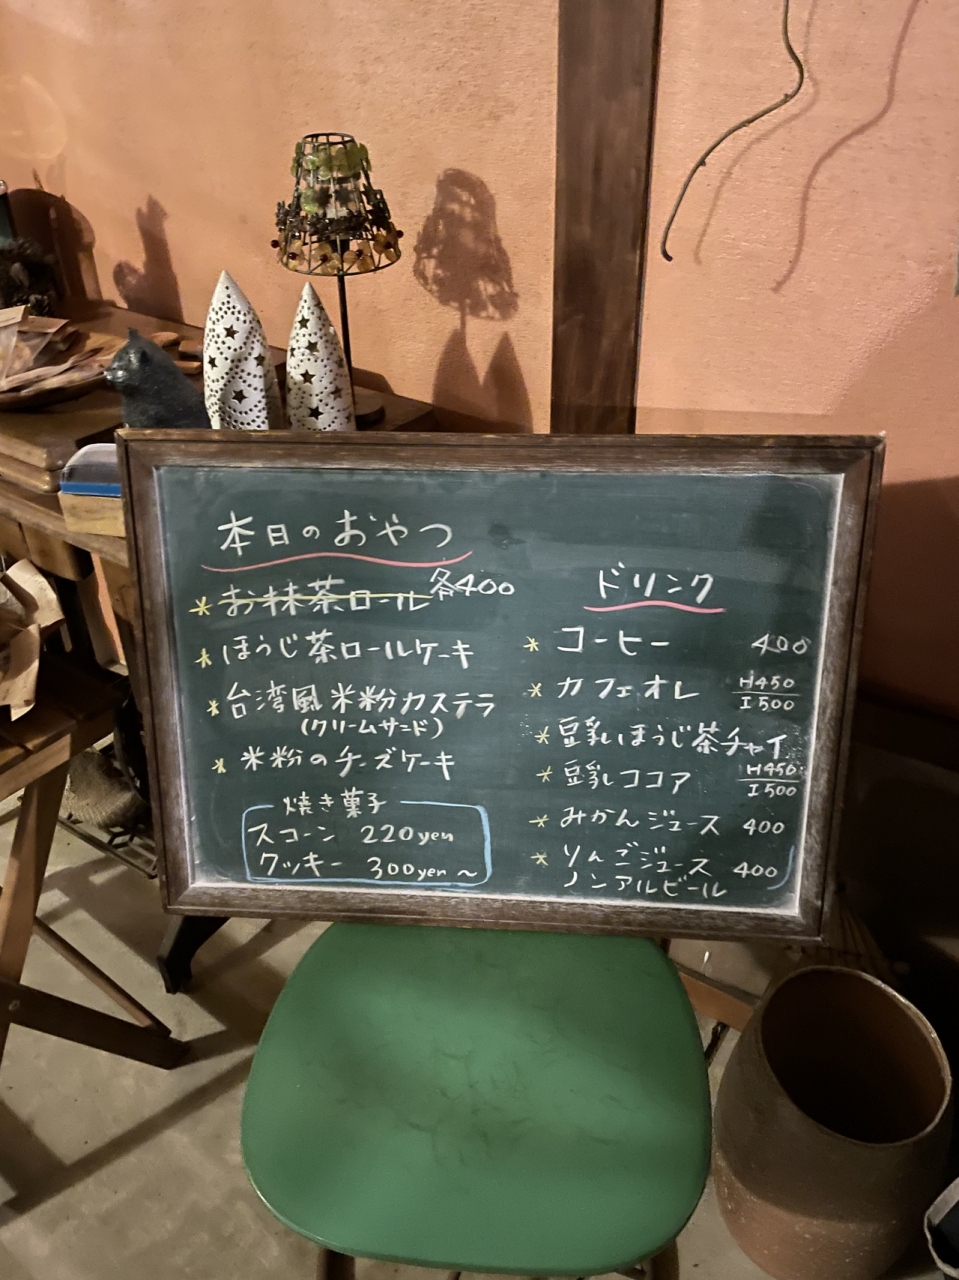 本日のおやつ
* お抹茶ロール 各400
* ほうじ茶ロールケーキ
* 台湾風米粉カステラ
(クリームサンド)
* 米粉のチーズケーキ
焼き菓子
スコーン 220yen
クッキー 300yen~
ドリンク
* コーヒー 400
* カフェオレ H450
I500
* 豆乳ほうじ茶チャイ
* 豆乳ココア H450
I500
* みかんジュース 400
* りんごジュース 400
ノンアルビール